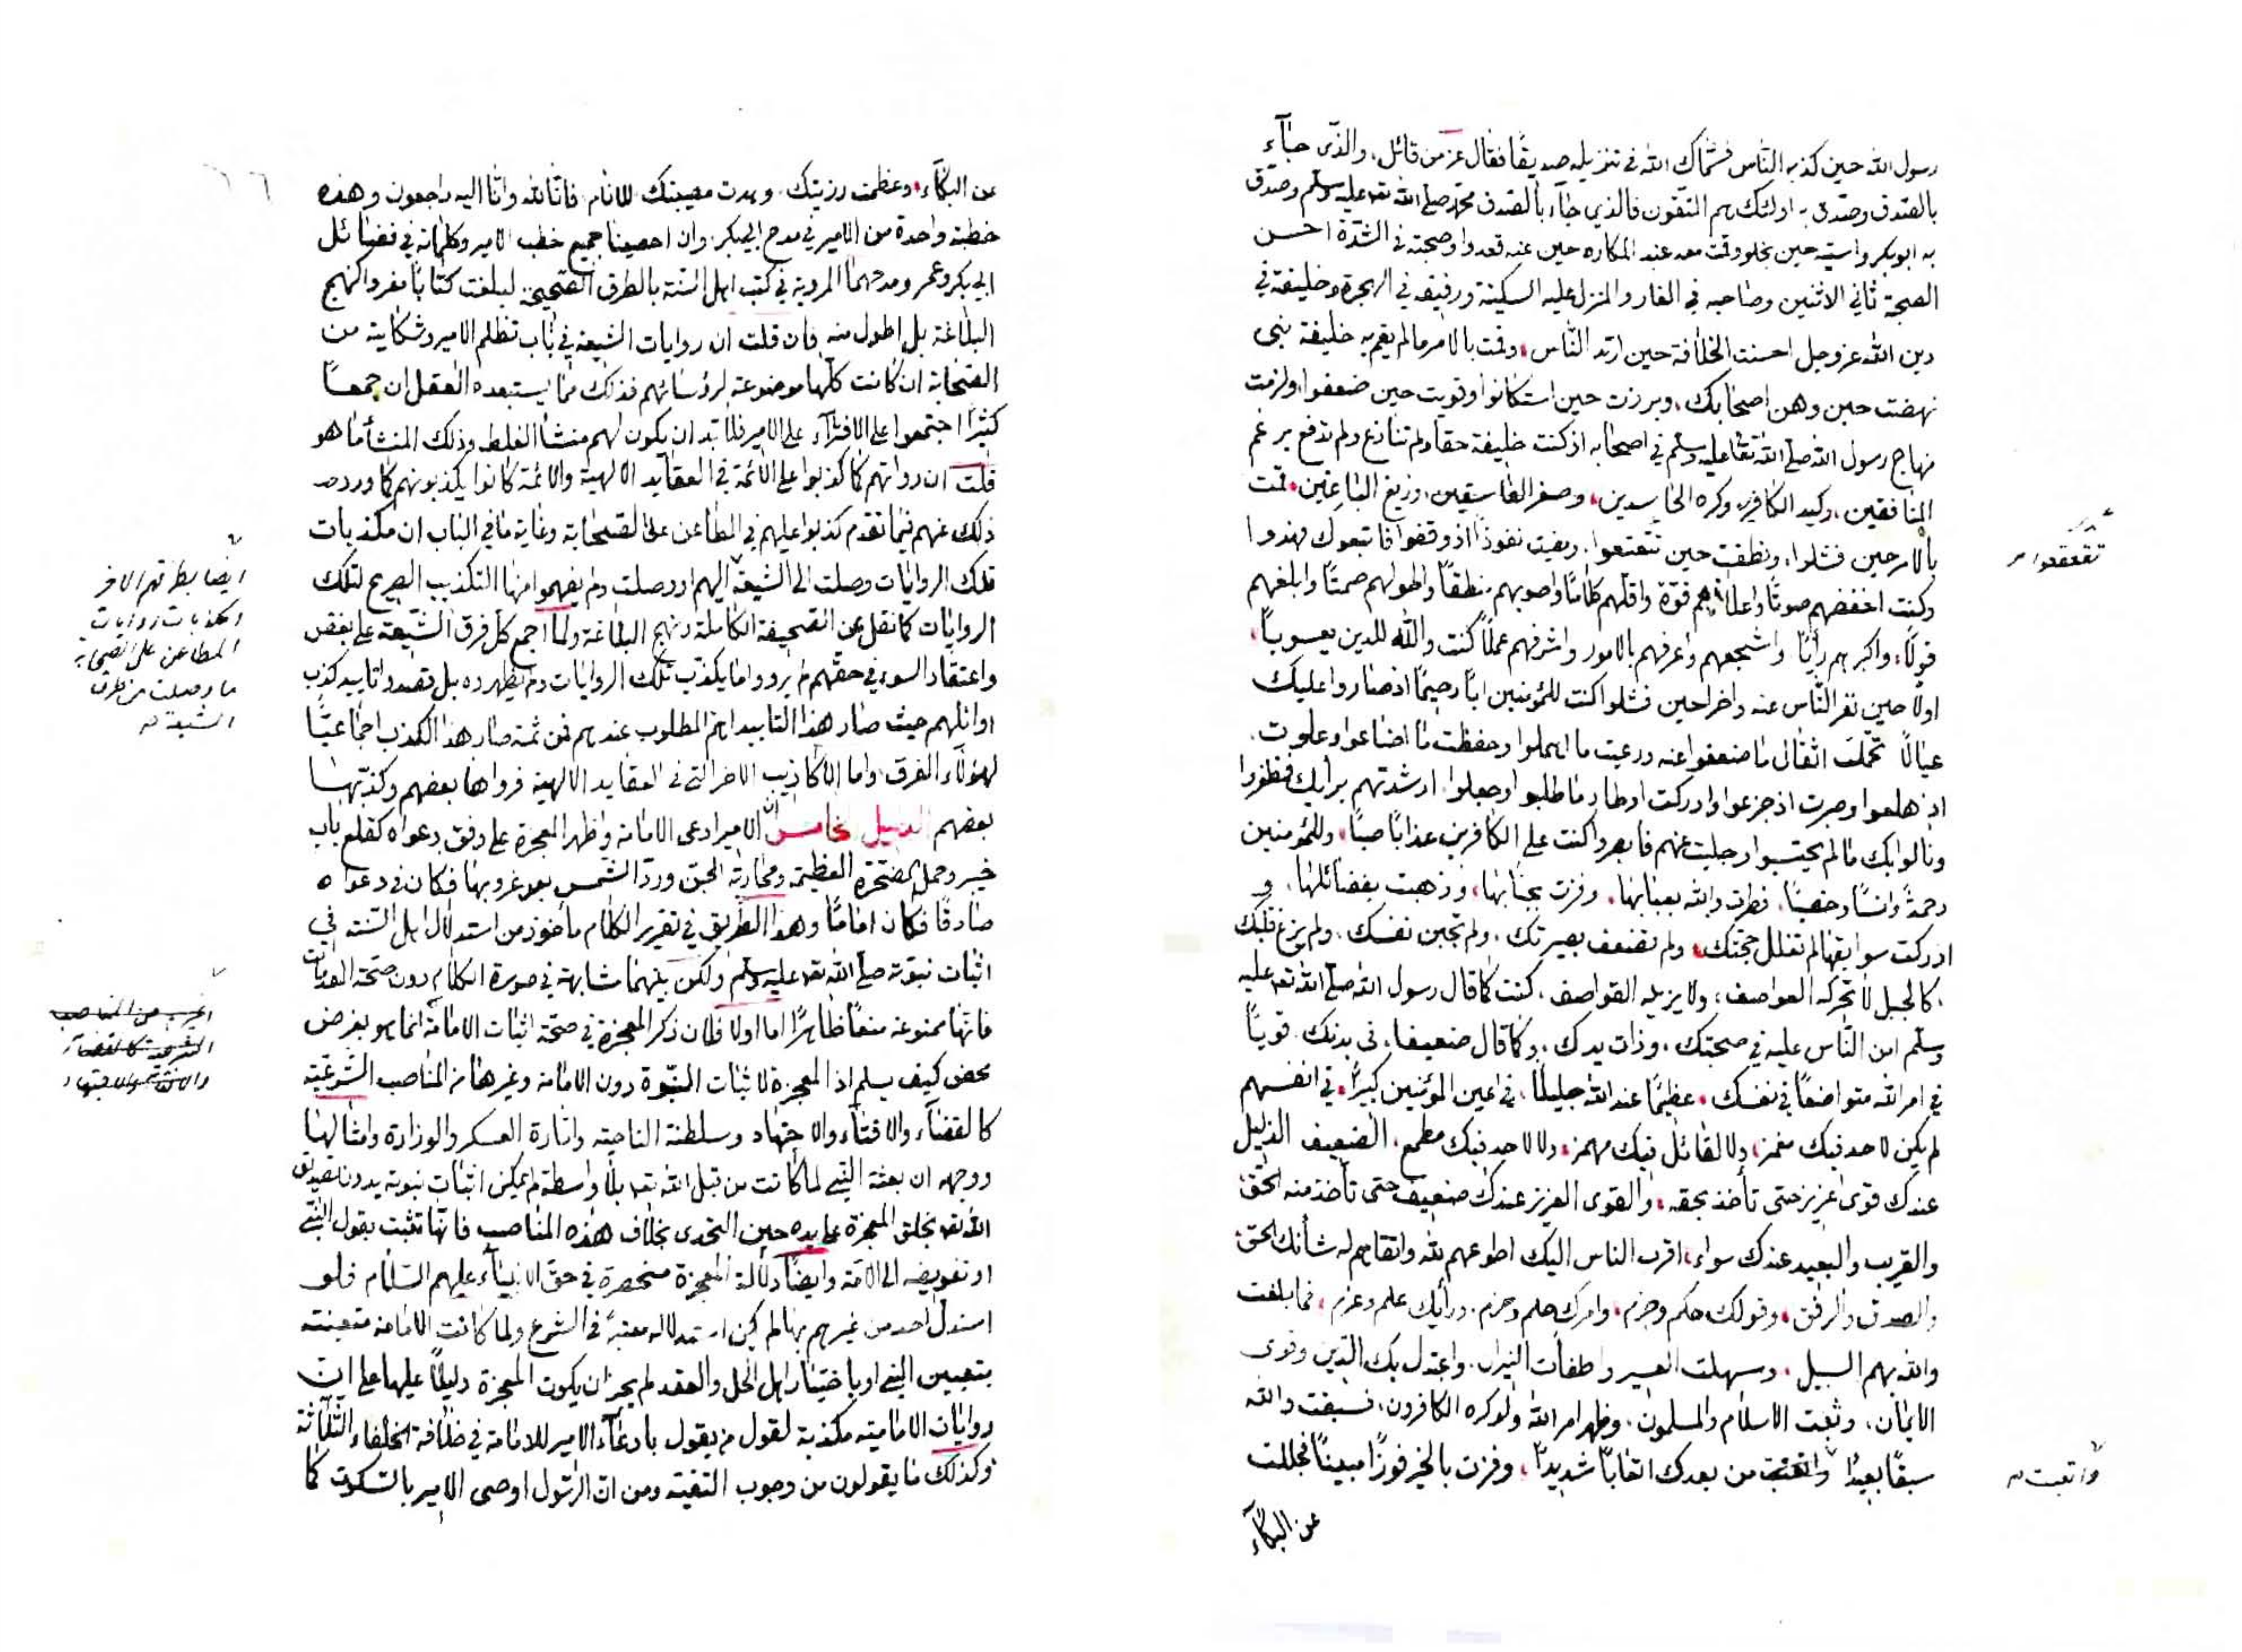 رسول الله حين كذبه الناس فسماك الله في تنزيله صديقا فقال عز من قائل والذي جآء
بالصدق وصدق به اولئك هم المتقون فالذي جاء بالصدق محمد صلى الله تعالى عليه وسلم وصدق
به ابوبكر واسيته حين بخلو وقمت معه عند المكاره حين عنه قعدوا وصحبته في الشدة احسن
الصحبة ثاني الاثنين وصاحبه في الغار والمنزل عليه السكينة ورفيقه في الهجرة وخليفته في
دين الله عز وجل احسنت الخلافة حين ارتد الناس وقمت بالامر مالم يقم به خليفة نبي
نهضت حين وهن اصحابك وبرزت حين استكانوا وقويت حين ضعفوا ولزمت
منهاج رسول الله صلى الله تعا عليه وسلم في اصحابه اذ كنت خليفة حقا ولم تنازع ولم تدفع برغم
المنافقين وكيد الكافرين وكره الحاسدين وصغر الفاسقين وزيغ الباغين قمت
بالامر حين فشلوا ونطقت حين تتعتعوا ومضيت نفوذا اذ وقفوا فاتبعوك فهدوا
تقعقعوا
وكنت اخفضهم صوتا واعلاهم قوة واقلهم كلاما واصوبهم منطقا واطولهم صمتا وابلغهم
قولا واكبرهم رأيا واشجعهم واعرفهم بالامور واشرفهم عملا كنت والله للدين يعسوبا
اولا حين نفر الناس عنه واخرا حين فشلوا كنت للمؤمنين ابا رحيما اذ صاروا عليك
عيالا تحملت اثقال ما ضعفوا عنه ورعيت ما اهملوا وحفظت ما اضاعوا وعلوت
اذ هلعوا وصبرت اذ جزعوا وادركت اوطار ما طلبوا وجعلوا ارشدتهم برأيك فظفروا
ونالوا بك مالم يحتسبوا وجليت عنهم فابصروا كنت على الكافرين عذابا صبا وللمؤمنين
رحمة وانسا وخصبا فطرت والله بعبابها وفزت بحبابها وذهبت بفضائلها و
ادركت سوابقها لم تفلل حجتك ولم تضعف بصيرتك ولم تجبن نفسك ولم يزغ قلبك
كالجبل لا تحركه العواصف ولا يزيله القواصف كنت كما قال رسول الله صلى الله تعا عليه
وسلم امن الناس عليه في صحبتك وذات يدك وكما قال ضعيفا في بدنك قويا
في امر الله متواضعا في نفسك عظيما عند الله جليلا في اعين المؤمنين كبيرا في انفسهم
لم يكن لاحد فيك مغمز ولا لقائل فيك مهمز ولا لاحد فيك مطمع الضعيف الذليل
عندك قوى عزيز حتى تأخذ بحقه والقوى العزيز عندك ضعيف حتى تأخذ منه الحق
والقريب والبعيد عندك سواء اقرب الناس اليك اطوعهم لله واتقاهم له شأنك الحق
والصدق والرفق وقولك حكم وجزم وامرك حلم وحزم ورأيك علم وعزم فما بلغت
والله بهم السبيل وسهلت العسير واطفأت النيران واعتدل بك الدين وقوى
الايمان وثبت الاسلام والمسلمون وظهر امر الله ولو كره الكافرون فسبقت والله
سبقا بعيدا واتعبت من بعدك اتعابا شديدا وفزت بالخير فوزا مبينا فجللت
واتعبت
عن البكآء
٦٦
عن البكآء وعظمت رزيتك وهدت مصيبتك للانام فانا لله وانا اليه راجعون وهذه
خطبة واحدة من الامير في مدح ابي بكر وان احصينا جميع خطب الامير وكلماته في فضائل
ابي بكر وعمر ومدحهما المروية في كتب اهل السنة بالطرق الصحيحة لبلغت كتابا مفردا كنهج
البلاغة بل اطول منه فان قلت ان روايات الشيعة في باب تظلم الامير وشكايته من
الصحابة ان كانت كلها موضوعة لرؤسائهم فذلك مما يستبعده العقل ان جمعا
كثيرا اجتمعوا على الافتراء على الامير فلا بد ان يكون لهم منشأ الغلط وذلك المنشأ ما هو
قلت ان رواتهم كما كذبوا على الائمة في العقايد الالهية والائمة كانوا يكذبونهم كما ورد
ذلك عنهم فيما تقدم كذبوا عليهم في المطاعن على الصحابة وغاية ما في الباب ان مكذبات
تلك الروايات وصلت الى الشيعة اليهم او وصلت ولم يفهموا منها التكذيب الصريح لتلك
ايضا بطرقهم الاخر
ومكذبات روايات
المطاعن على الصحابة
ما وصلت من طرق
الشيعة
الروايات كما نقل عن الصحيفة الكاملة ونهج البلاغة ولما اجمع كل فرق الشيعة على بغض
واعتقاد السوء في حقهم لم يرووا ما يكذب تلك الروايات ولم يظهروه بل قصدوا تأييد كذب
اوائلهم حيث صار هذا التأييد اهم المطلوب عندهم فمن ثمة صار هذا الكذب اجماعيا
لهؤلاء الفرق واما الاكاذيب الاخر التي في العقايد الالهية فرواها بعضهم وكذبها
بعضهم الدليل الخامس ان الامير ادعى الامامة واظهر المعجزة على وفق دعواه كقلع باب
خيبر وحمل الصخرة العظيمة ومحاربة الجن ورد الشمس بعد غروبها فكان في دعواه
صادقا فكان اماما وهذا الطريق في تقرير الكلام مأخوذ من استدلال اهل السنة في
اثبات نبوته صلى الله تعا عليه وسلم ولكن بينهما مشابهة في صورة الكلام دون صحة المقدمات
فانها ممنوعة منعا ظاهرا اما اولا فلان ذكر المعجزة في صحة اثبات الامامة انما هو بفرض
محض كيف يسلم اذ المعجزة لاثبات النبوة دون الامامة وغيرها من المناصب الشرعية
من المناصب
الشرعية كالقضآء
والافتآء والاجتهاد
كالقضآء والافتآء والاجتهاد وسلطنة الناحية وامارة العسكر والوزارة وامثالها
ووجهه ان بعثة النبي لما كانت من قبل الله تعا بلا واسطة لم يمكن اثبات نبوته بدون تصديق
الله تعا بخلق المعجزة على يده حين التحدى بخلاف هذه المناصب فانها تثبت بقول النبي
او تفويضه الى الامة وايضا دلالة المعجزة منحصرة في حق الانبيآء عليهم السلام فلو
استدل احد من غيرهم بها لم يكن استدلاله معتبرا في الشرع ولما كانت الامامة متعينة
بتعيين النبي او باختيار اهل الحل والعقد لم يجز ان يكون المعجزة دليلا عليها على ان
روايات الامامية مكذبة لقول من يقول بادعآء الامير للامامة في خلافة الخلفاء الثلاثة
وكذلك ما يقولون من وجوب التقية ومن ان الرسول اوصى الامير بالسكوت كما